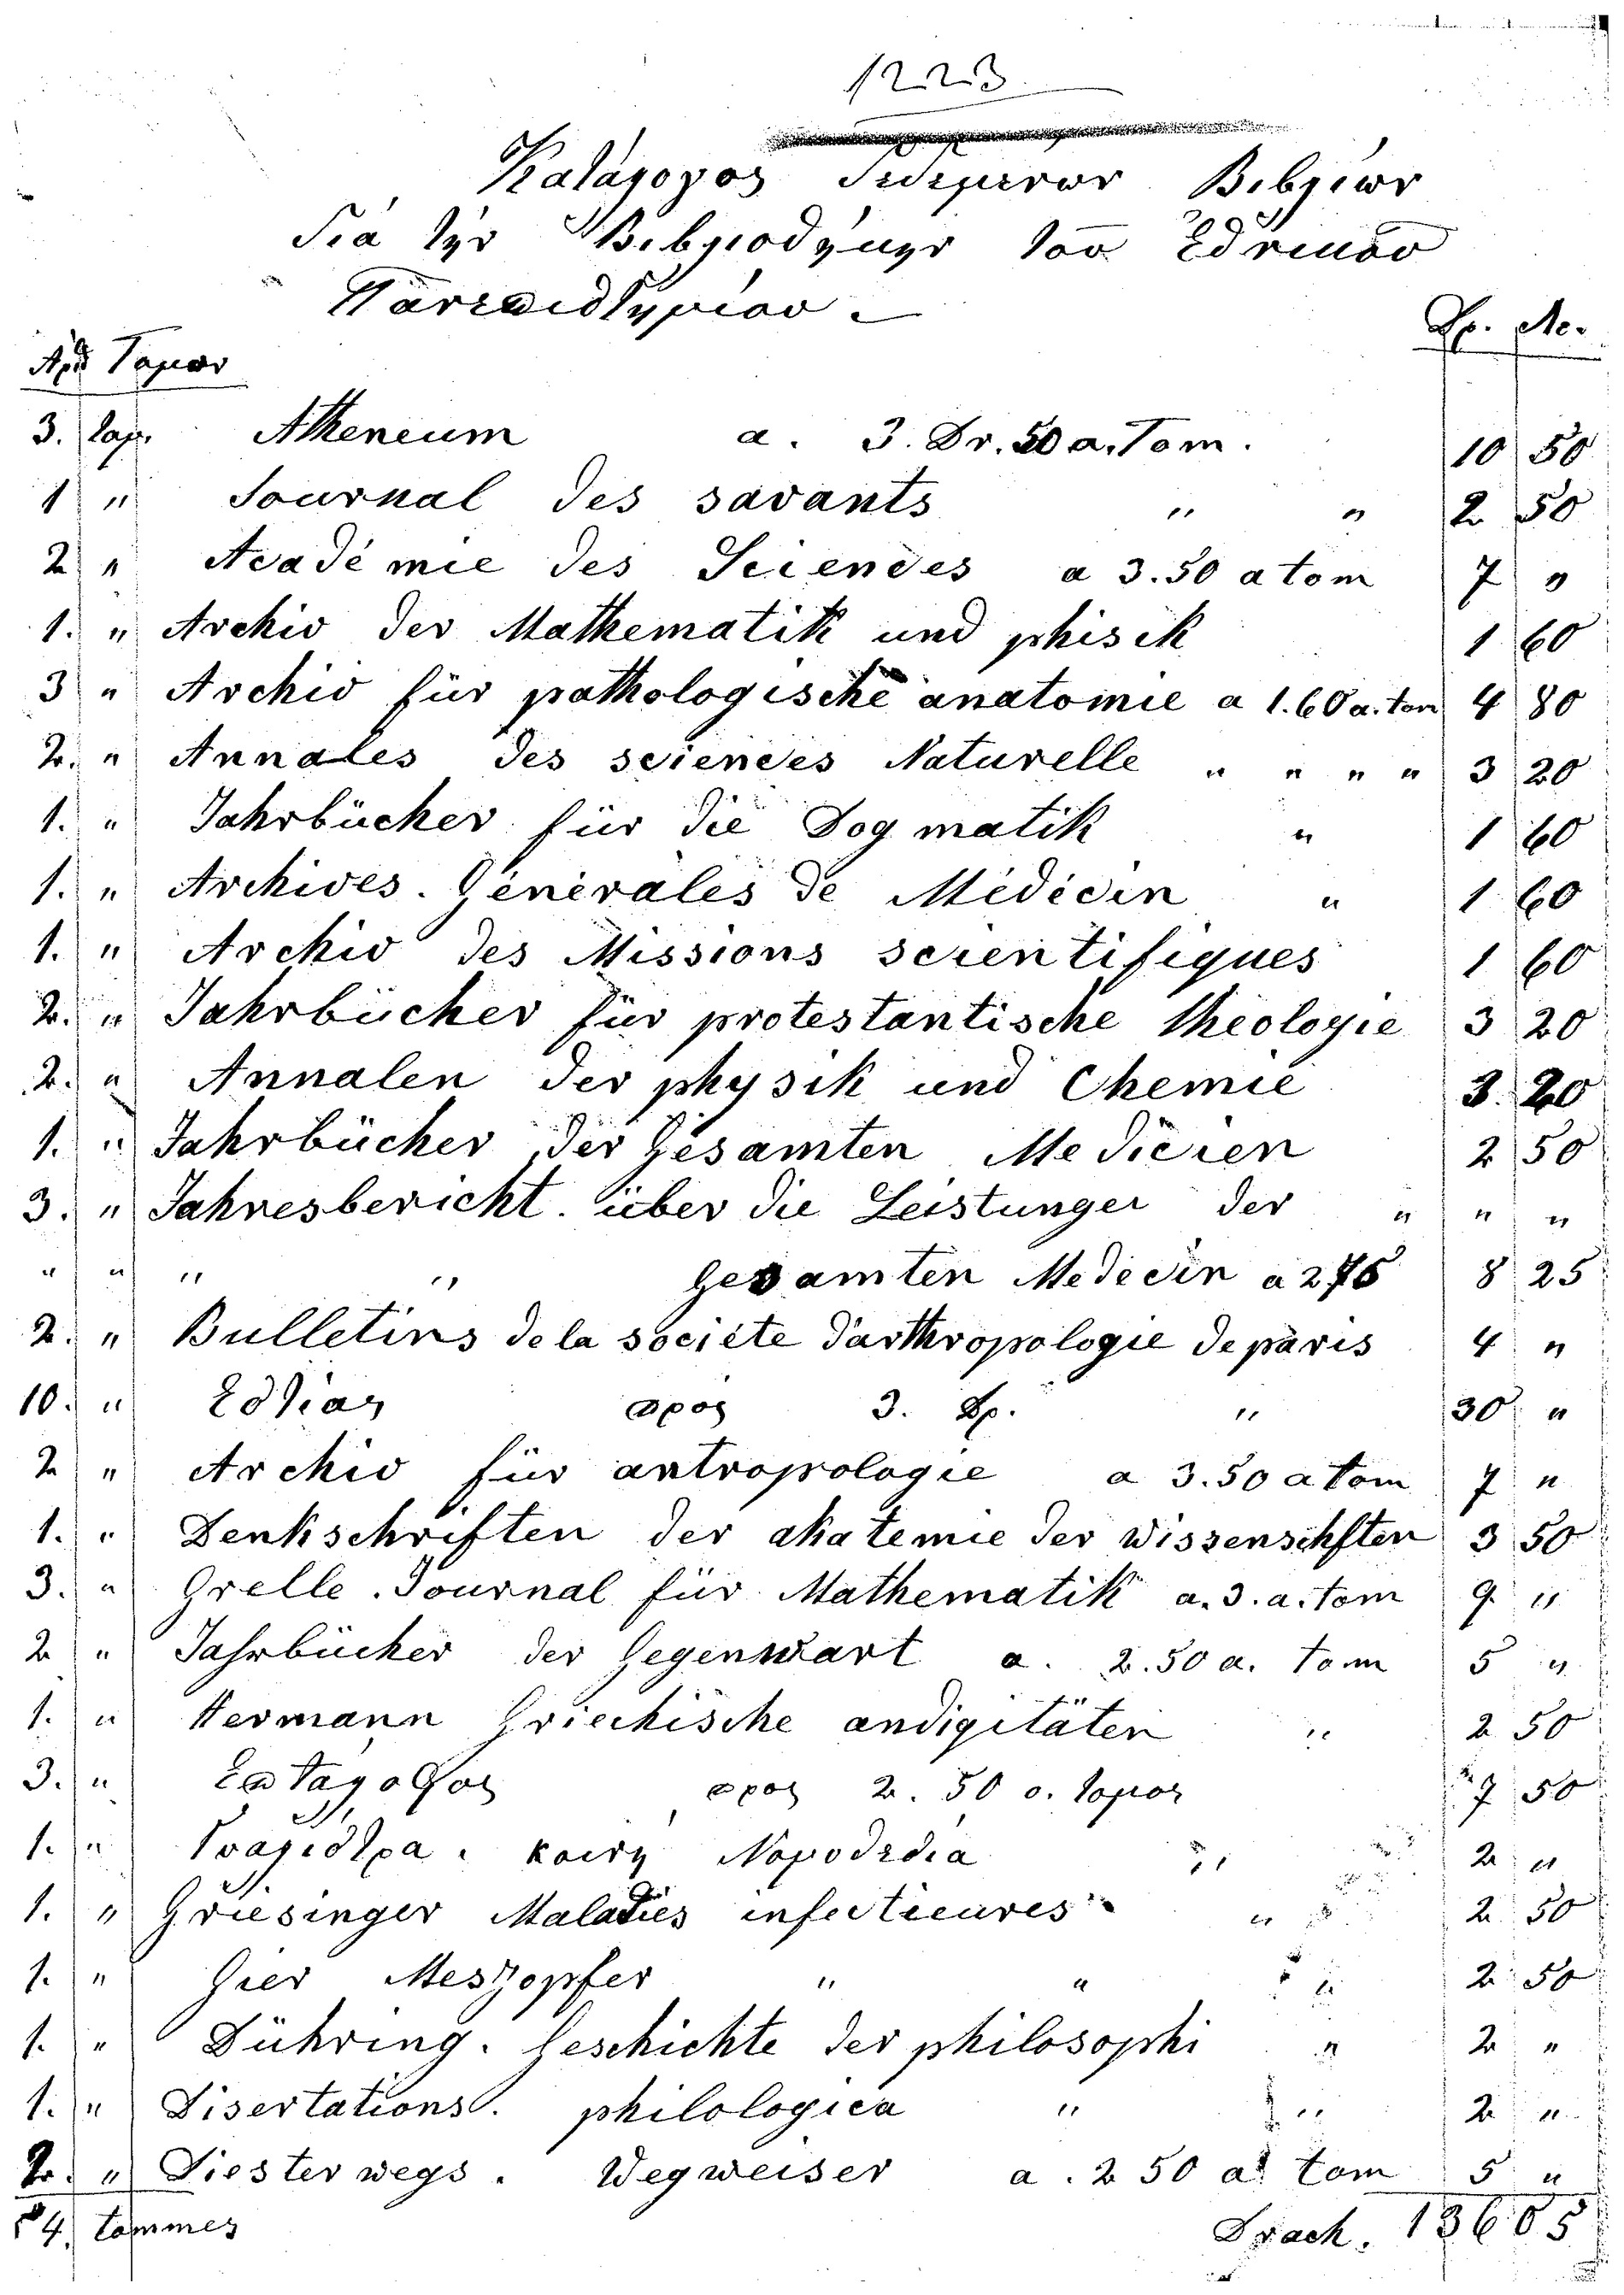 1223
Κατάλογος δεδεμένων Βιβλίων
διά την Βιβλιοθήκην του Εθνικού
Πανεπιστημίου.
Δρ. Λε.
Αρθ Τομων
3. τομ. Atheneum a. 3. Dr. 50 a. Tom. 10 50
1 " Journal des savants " " 2 50
2 " Académie des Sciences a 3.50 a tom 7 "
1. " Archiv der Mathematik und phisik 1 60
3 " Archiv für pathologische anatomie a 1.60 a. tom 4 80
2. " Annales des sciences Naturelle " " " " 3 20
1. " Jahrbücher für die Dogmatik " 1 60
1. " Archives. Génèrales de Médécin " 1 60
1. " Archiv des Missions scientifiques 1 60
2. " Jahrbücher für protestantische theologie 3 20
2. " Annalen der physik und Chemie 3. 20
1. " Jahrbücher der Gesamten Medicien 2 50
3. " Jahresbericht. über die Leistunger der " " "
" " " " Gesamten Medecin a 275 8 25
2. " Bulletins de la sociéte d'anthropologie de paris 4 "
10. " Εστίας προς 3. Δρ. " 30 "
2 " Archiv für antropologie a 3.50 a tom 7 "
1. " Denkschriften der akatemie der wissenschften 3 50
3. " Grelle. Journal für Mathematik a. 3. a. tom 9 "
2 " Jahrbücher der Gegenwart a. 2.50 a. tom 5 "
1. " Hermann Griechische andiqitäten " 2 50
3. " Επτάλοφος προς 2. 50 ο. τομος 7 50
1. " κοινή Νομοθεσία " 2 "
1. " Griesinger Maladies infectieures " 2 50
1. " Gier Meszopfer " " " 2 50
1. " Dühring. Geschichte der philosophi " 2 "
1. " Disertations. philologica " " 2 "
2. " Diesterwegs. Wegweiser a. 2 50 a tom 5 "
54. tommes Drach. 136 05